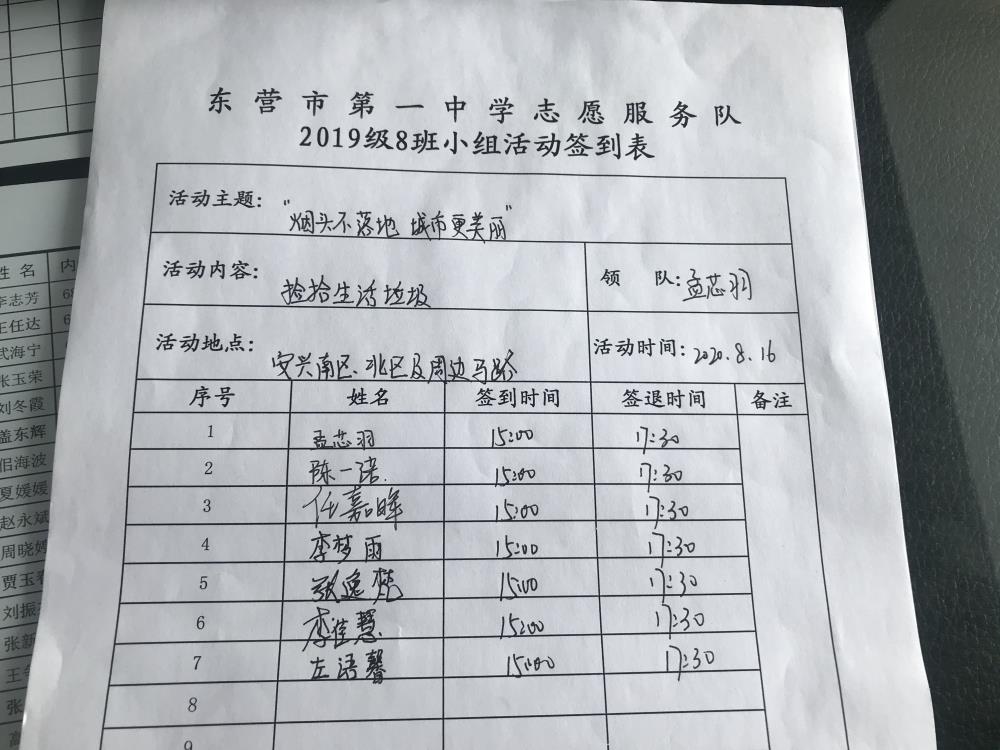 东营市第一中学志愿服务队
2019级8班小组活动签到表
活动主题："烟头不落地 城市更美丽"
活动内容：捡拾生活垃圾
领 队：孟芯羽
活动地点：安兴南区、北区及周边马路
活动时间：2020.8.16
序号 姓名 签到时间 签退时间 备注
1 孟芯羽 15:00 17:30
2 陈一诺 15:00 17:30
3 任嘉晖 15:00 17:30
4 李梦雨 15:00 17:30
5 张逸梵 15:00 17:30
6 李佳慧 15:00 17:30
7 左语馨 15:00 17:30
8
9
姓名 内
李志芳 68
王任达 6
武海宁
张玉荣
刘冬霞
盖东辉
但海波
夏媛媛
赵永斌
周晓
贾玉
刘振
张新
王
张